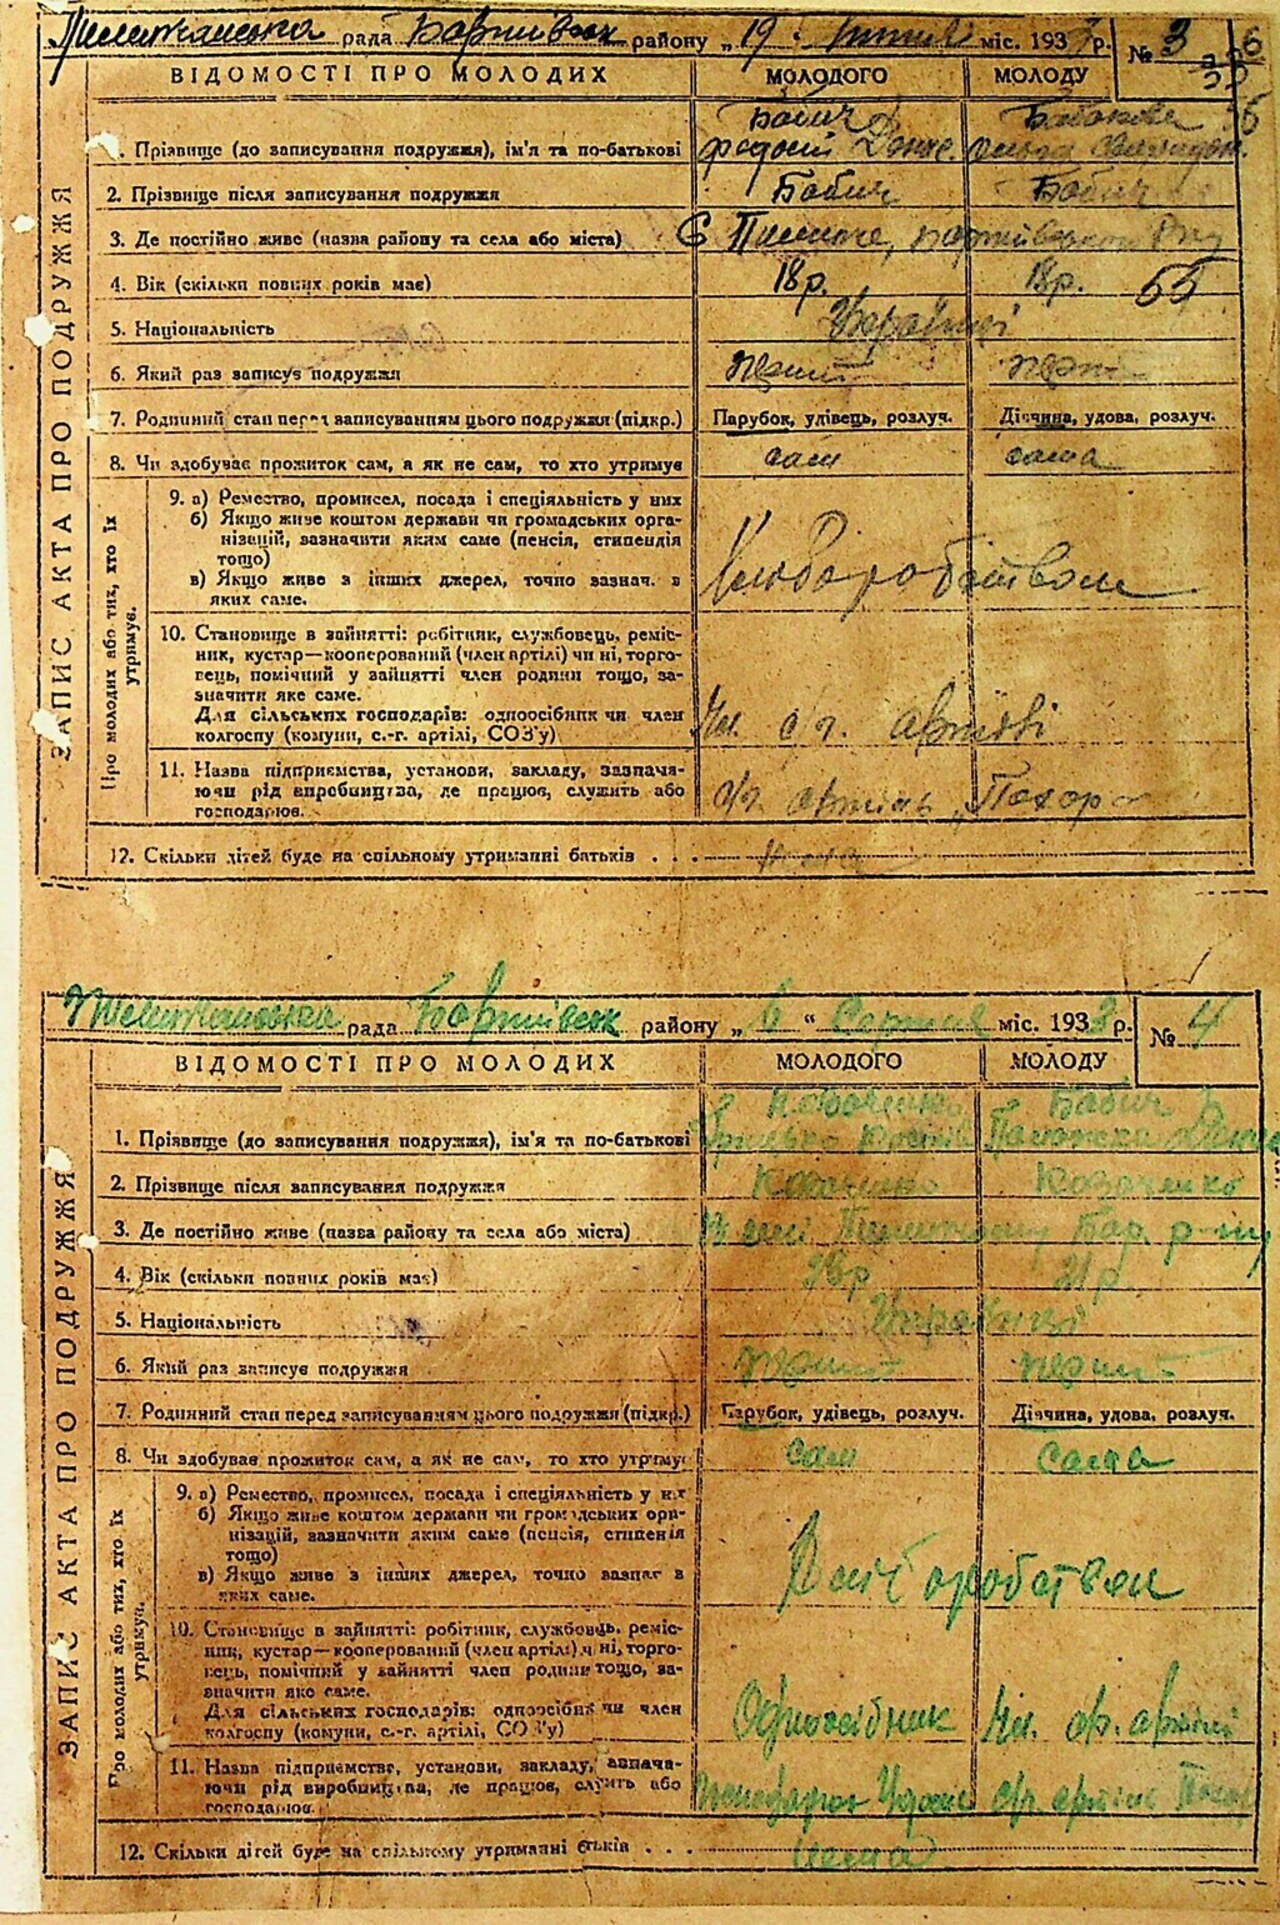 рада район у „ 19 " міс. 193 р. № 3
ВІДОМОСТІ ПРО МОЛОДИХ МОЛОДОГО МОЛОДУ
ЗАПИС АКТА ПРО ПОДРУЖЖЯ
Бабич
1. Прізвище (до записування подружжя), ім'я та по-батькові
2. Прізвище після записування подружжя Бабич Бабич
3. Де постійно живе (назва району та села або міста)
4. Вік (скільки повних років має) 18р. 18р. 55
5. Національність Українці
6. Який раз записує подружжя перший
7. Родинний стан перед записуванням цього подружжя (підкр.) Парубок, удівець, розлуч. Дівчина, удова, розлуч.
8. Чи здобуває прожиток сам, а як не сам, то хто утримує сам сама
Про молодих або тих, хто їх утримує.
9. а) Ремество, промисел, посада і спеціяльність у них
б) Якщо живе коштом держави чи громадських орга-
нізацій, зазначити яким саме (пенсія, стипендія
тощо)
в) Якщо живе з інших джерел, точно зазнач. з
яких саме.
Хліборобством
10. Становище в зайнятті: робітник, службовець, реміс-
ник, кустар—кооперований (член артілі) чи ні, торго-
вець, помічний у зайнятті член родини тощо, за-
значити яке саме.
Для сільських господарів: одноосібник чи член
колгоспу (комуни, с.-г. артілі, СОЗ'у)
Чл. с/г. артілі
11. Назва підприємства, установи, закладу, зазнача-
ючи рід виробництва, де працює, служить або
господарює.
с/г. артіль
12. Скільки дітей буде на спільному утриманні батьків . . . нема
рада район у „ 6 “ Серпня міс. 1933 р. № 4
ВІДОМОСТІ ПРО МОЛОДИХ МОЛОДОГО МОЛОДУ
ЗАПИС АКТА ПРО ПОДРУЖЖЯ
Бабич
1. Прізвище (до записування подружжя), ім'я та по-батькові
2. Прізвище після записування подружжя Козаченко Козаченко
3. Де постійно живе (назва району та села або міста) В селі Бар. р-ну
4. Вік (скільки повних років має) 21р
5. Національність Українці
6. Який раз записує подружжя перший перший
7. Родинний стан перед записуванням цього подружжя (підкр.) Парубок, удівець, розлуч. Дівчина, удова, розлуч.
8. Чи здобуває прожиток сам, а як не сам, то хто утримує сам сама
Про молодих або тих, хто їх утримує.
9. а) Ремество, промисел, посада і спеціяльність у них
б) Якщо живе коштом держави чи громадських орга-
нізацій, зазначити яким саме (пенсія, стипендія
тощо)
в) Якщо живе з інших джерел, точно зазнач. з
яких саме.
Хліборобством
10. Становище в зайнятті: робітник, службовець, реміс-
ник, кустар—кооперований (член артілі) чи ні, торго-
вець, помічний у зайнятті член родини тощо, за-
значити яке саме.
Для сільських господарів: одноосібник чи член
колгоспу (комуни, с.-г. артілі, СОЗ'у)
Одноосібник Чл. с/г. артілі
11. Назва підприємства, установи, закладу, зазнача-
ючи рід виробництва, де працює, служить або
господарює.
с/г. артіль
12. Скільки дітей буде на спільному утриманні батьків . . . нема